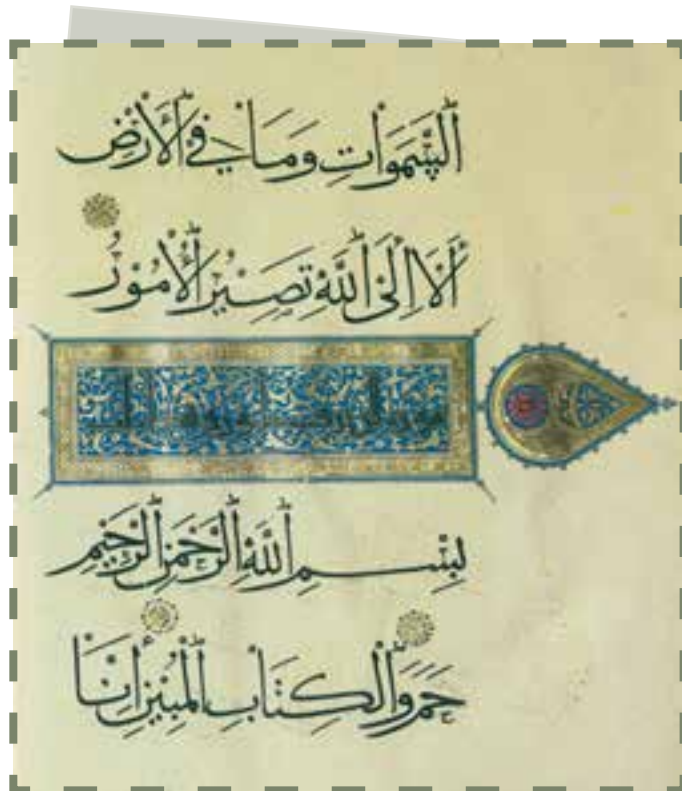 ٱلسَّمَوَاتِ وَمَا فِي ٱلْأَرْضِ
أَلَا إِلَى ٱللَّهِ تَصِيرُ ٱلْأُمُورُ
بِسْمِ ٱللَّهِ ٱلرَّحْمَنِ ٱلرَّحِيمِ
حمَ وَٱلْكِتَابِ ٱلْمُبِينِ إِنَّا